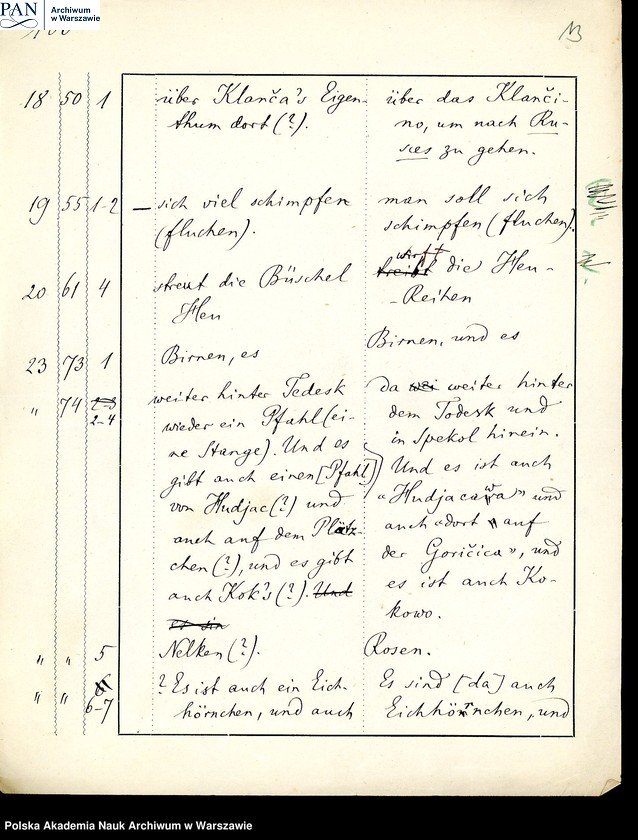 PAN
Archiwum
w Warszawie
13
18 50 1 über Klanča's Eigen- über das Klanči-
thum dort (?). no, um nach Ru-
scis zu gehen.
19 55 1-2 — sich viel schimpfen man soll sich
(fluchen). schimpfen (fluchen).
20 61 4 streut die Büschel wirft die Heu-
Heu -Reihen
23 73 1 Birnen, es Birnen, und es
" 74 2-4 weiter hinter Tedesk da weiter hinter
wieder ein Pfahl (ei- dem Todesk und
ne Stange). Und es in Spekol hinein.
gibt auch einen [Pfahl] Und es ist auch
von Hudjac (?) und "Hudjacawa" und
auch auf dem Plätz- auch "dort auf
chen (?), und es gibt der Goričica", und
auch Kok's (?). Und es ist auch Ko-
kowo.
" " 5 Nelken (?). Rosen.
" " 6-7 ? Es ist auch ein Eich- Es sind [da] auch
hörnchen, und auch Eichhörnchen, und
Polska Akademia Nauk Archiwum w Warszawie